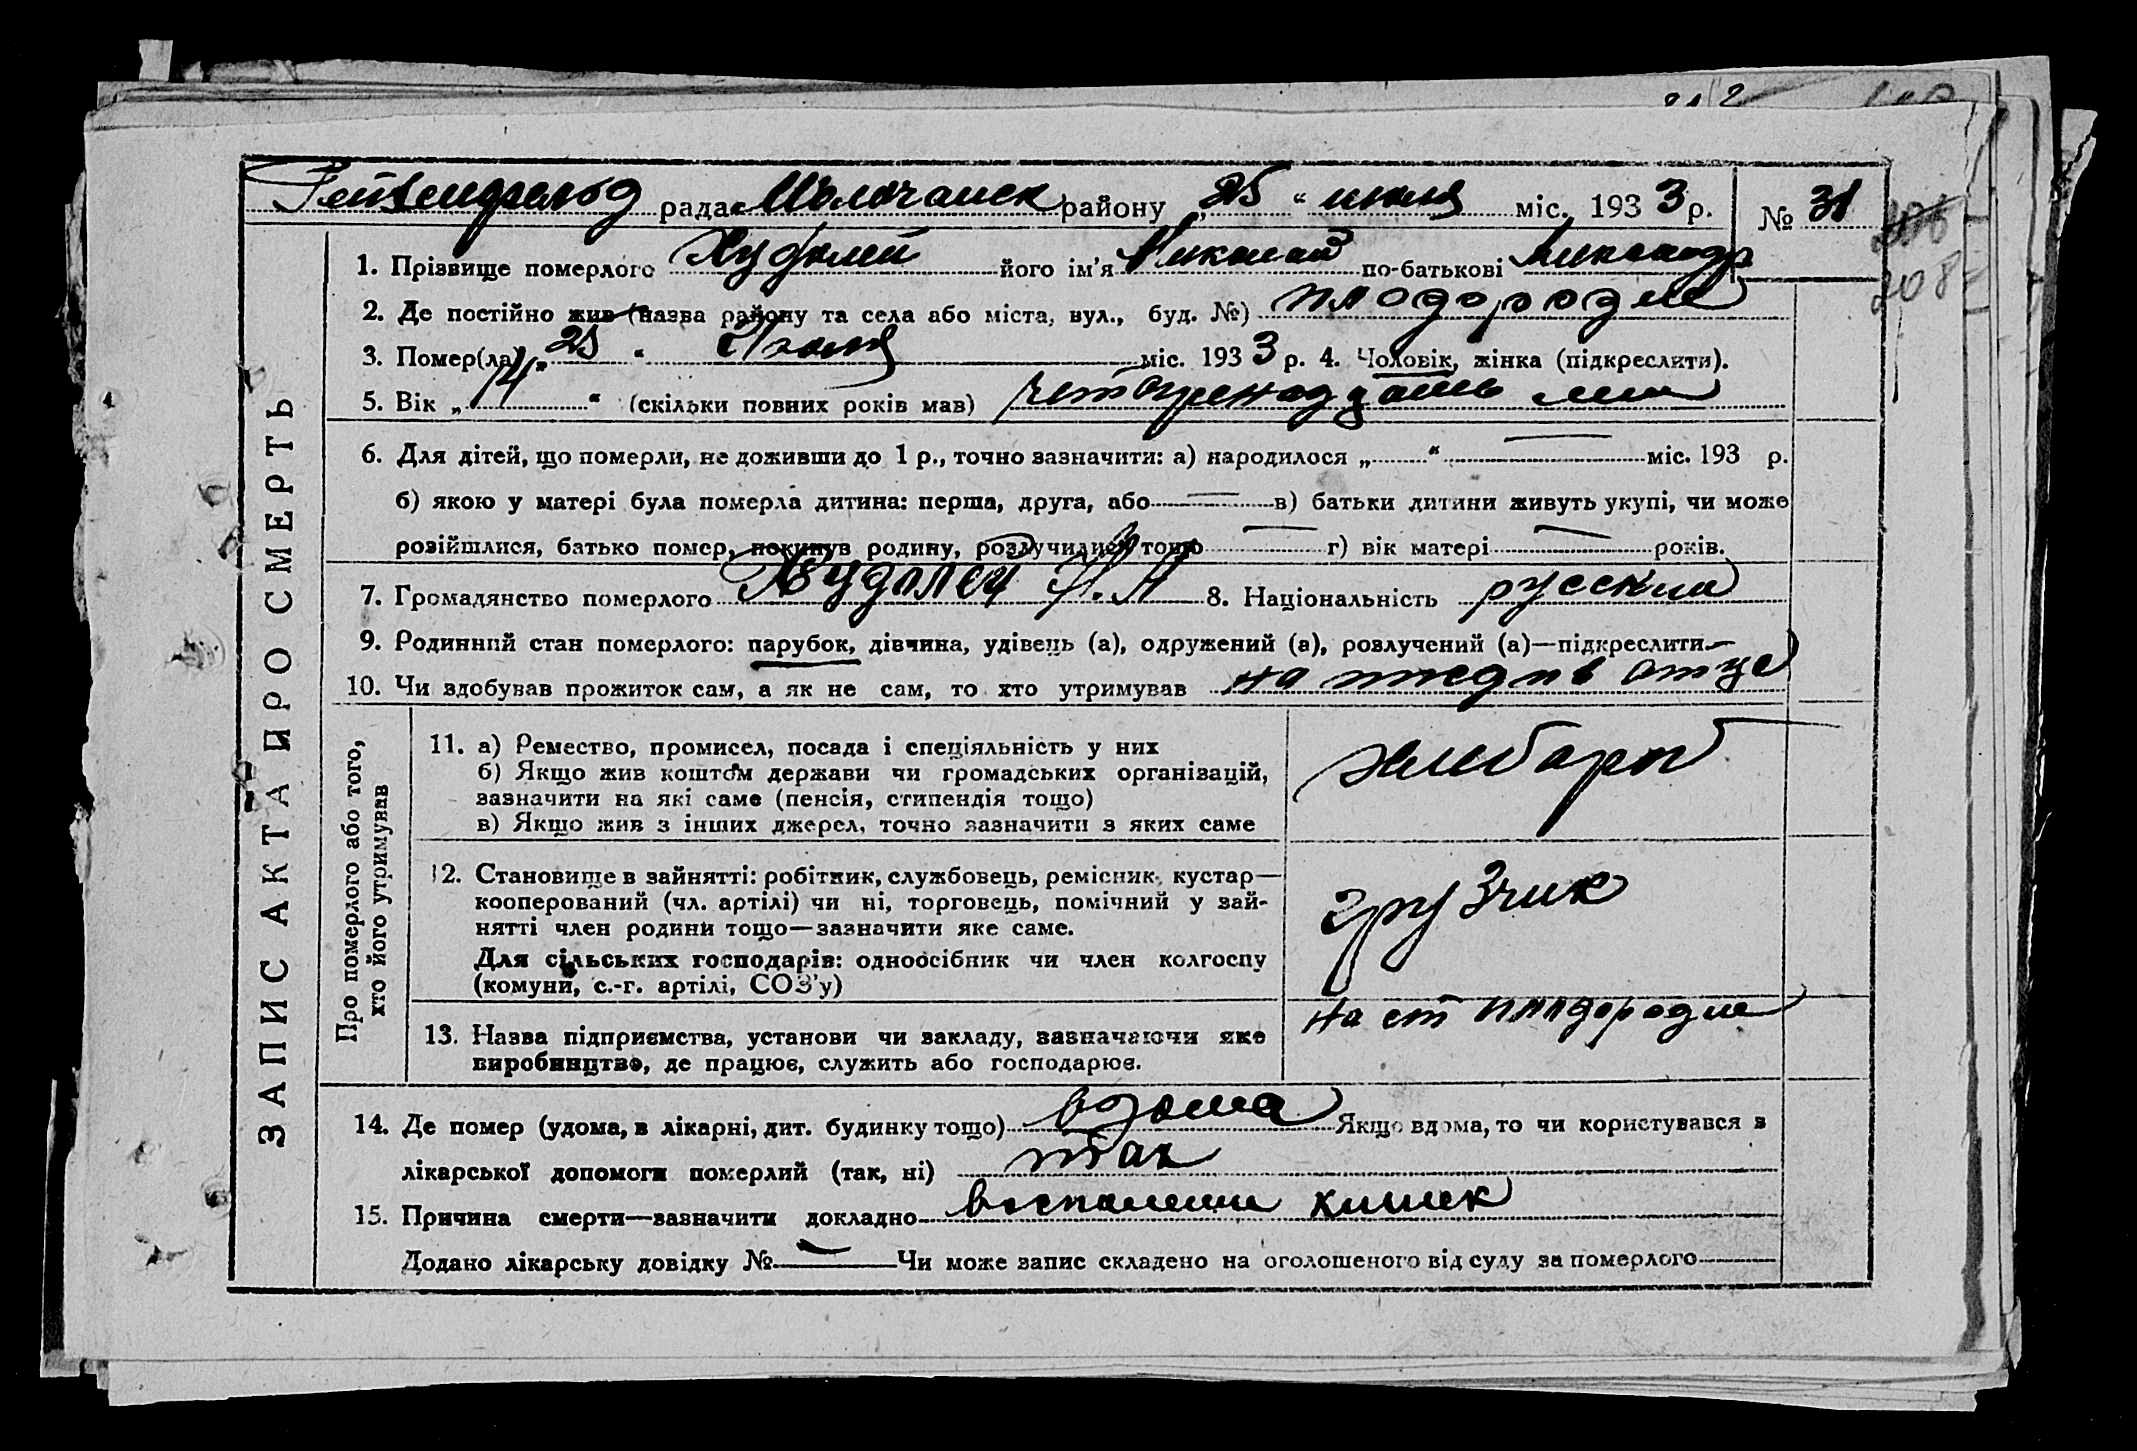 Гейденфельд рада Молочанск району „25“ июля міс. 1933 р. № 31
1. Прізвище померлого Худолей його ім'я Николай по-батькові Александр
2. Де постійно жив (назва району та села або міста, вул., буд. №) плодородие
3. Помер(ла) „25“ Июля міс. 1933 р. 4. Чоловік, жінка (підкреслити).
5. Вік „14“ (скільки повних років мав) четырнадцать лет
6. Для дітей, що померли, не доживши до 1 р., точно зазначити: а) народилося „ “ міс. 193 р.
б) якою у матері була померла дитина: перша, друга, або — в) батьки дитини живуть укупі, чи може
розійшлися, батько помер, покинув родину, розлучилися тощо — г) вік матері — років.
7. Громадянство померлого Худолей 8. Національність русский
9. Родинний стан померлого: парубок, дівчина, удівець (а), одружений (а), розлучений (а)—підкреслити
10. Чи здобував прожиток сам, а як не сам, то хто утримував на отце
ЗАПИС АКТА ПРО СМЕРТЬ
Про померлого або того,
хто його утримував
11. а) Ремество, промисел, посада і спеціяльність у них
б) Якщо жив коштом держави чи громадських організацій,
зазначити на які саме (пенсія, стипендія тощо)
в) Якщо жив з інших джерел, точно зазначити з яких саме
12. Становище в зайнятті: робітник, службовець, ремісник, кустар—
кооперований (чл. артілі) чи ні, торговець, помічний у зай-
нятті член родини тощо—зазначити яке саме.
Для сільських господарів: одноосібник чи член колгоспу
(комуни, с.-г. артілі, СОЗ'у)
грузчик
13. Назва підприємства, установи чи закладу, зазначаючи яке
виробництво, де працює, служить або господарює.
на ст плодородие
14. Де помер (удома, в лікарні, дит. будинку тощо) вдома Якщо вдома, то чи користувався з
лікарської допомоги померлий (так, ні) так
15. Причина смерти—зазначити докладно воспаление кишек
Додано лікарську довідку № — Чи може запис складено на оголошеного від суду за померлого
208